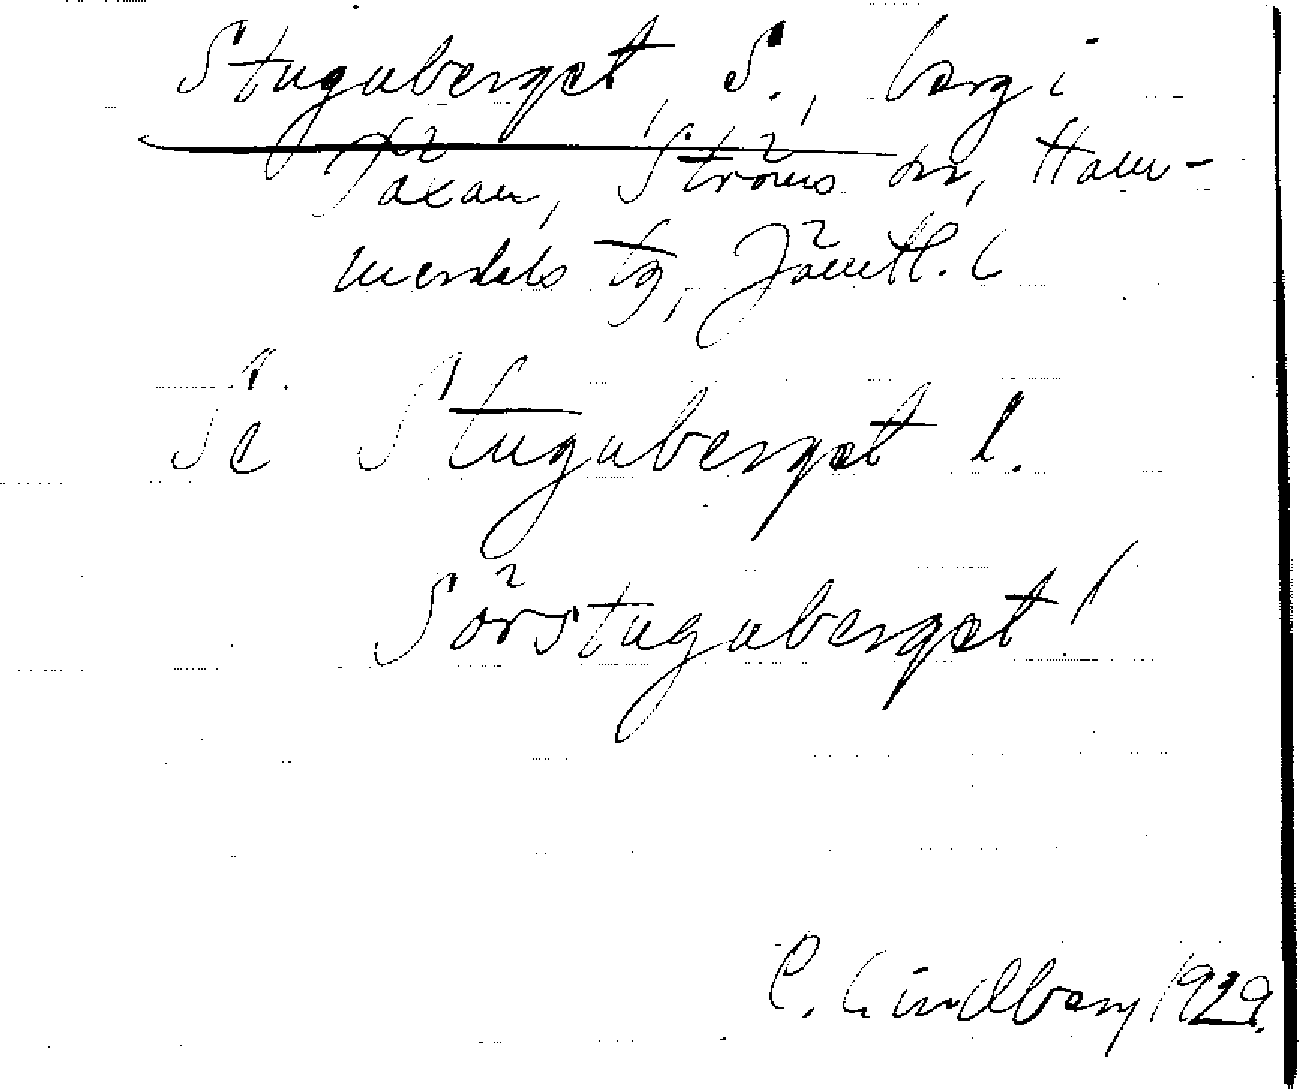 Stuguberget, S., berg i
Täxan, Ströms sn, Ham-
merdals tg, Jämtl. l
Se Stuguberget l.
Sörstuguberget!
C. Lindberg 1929.